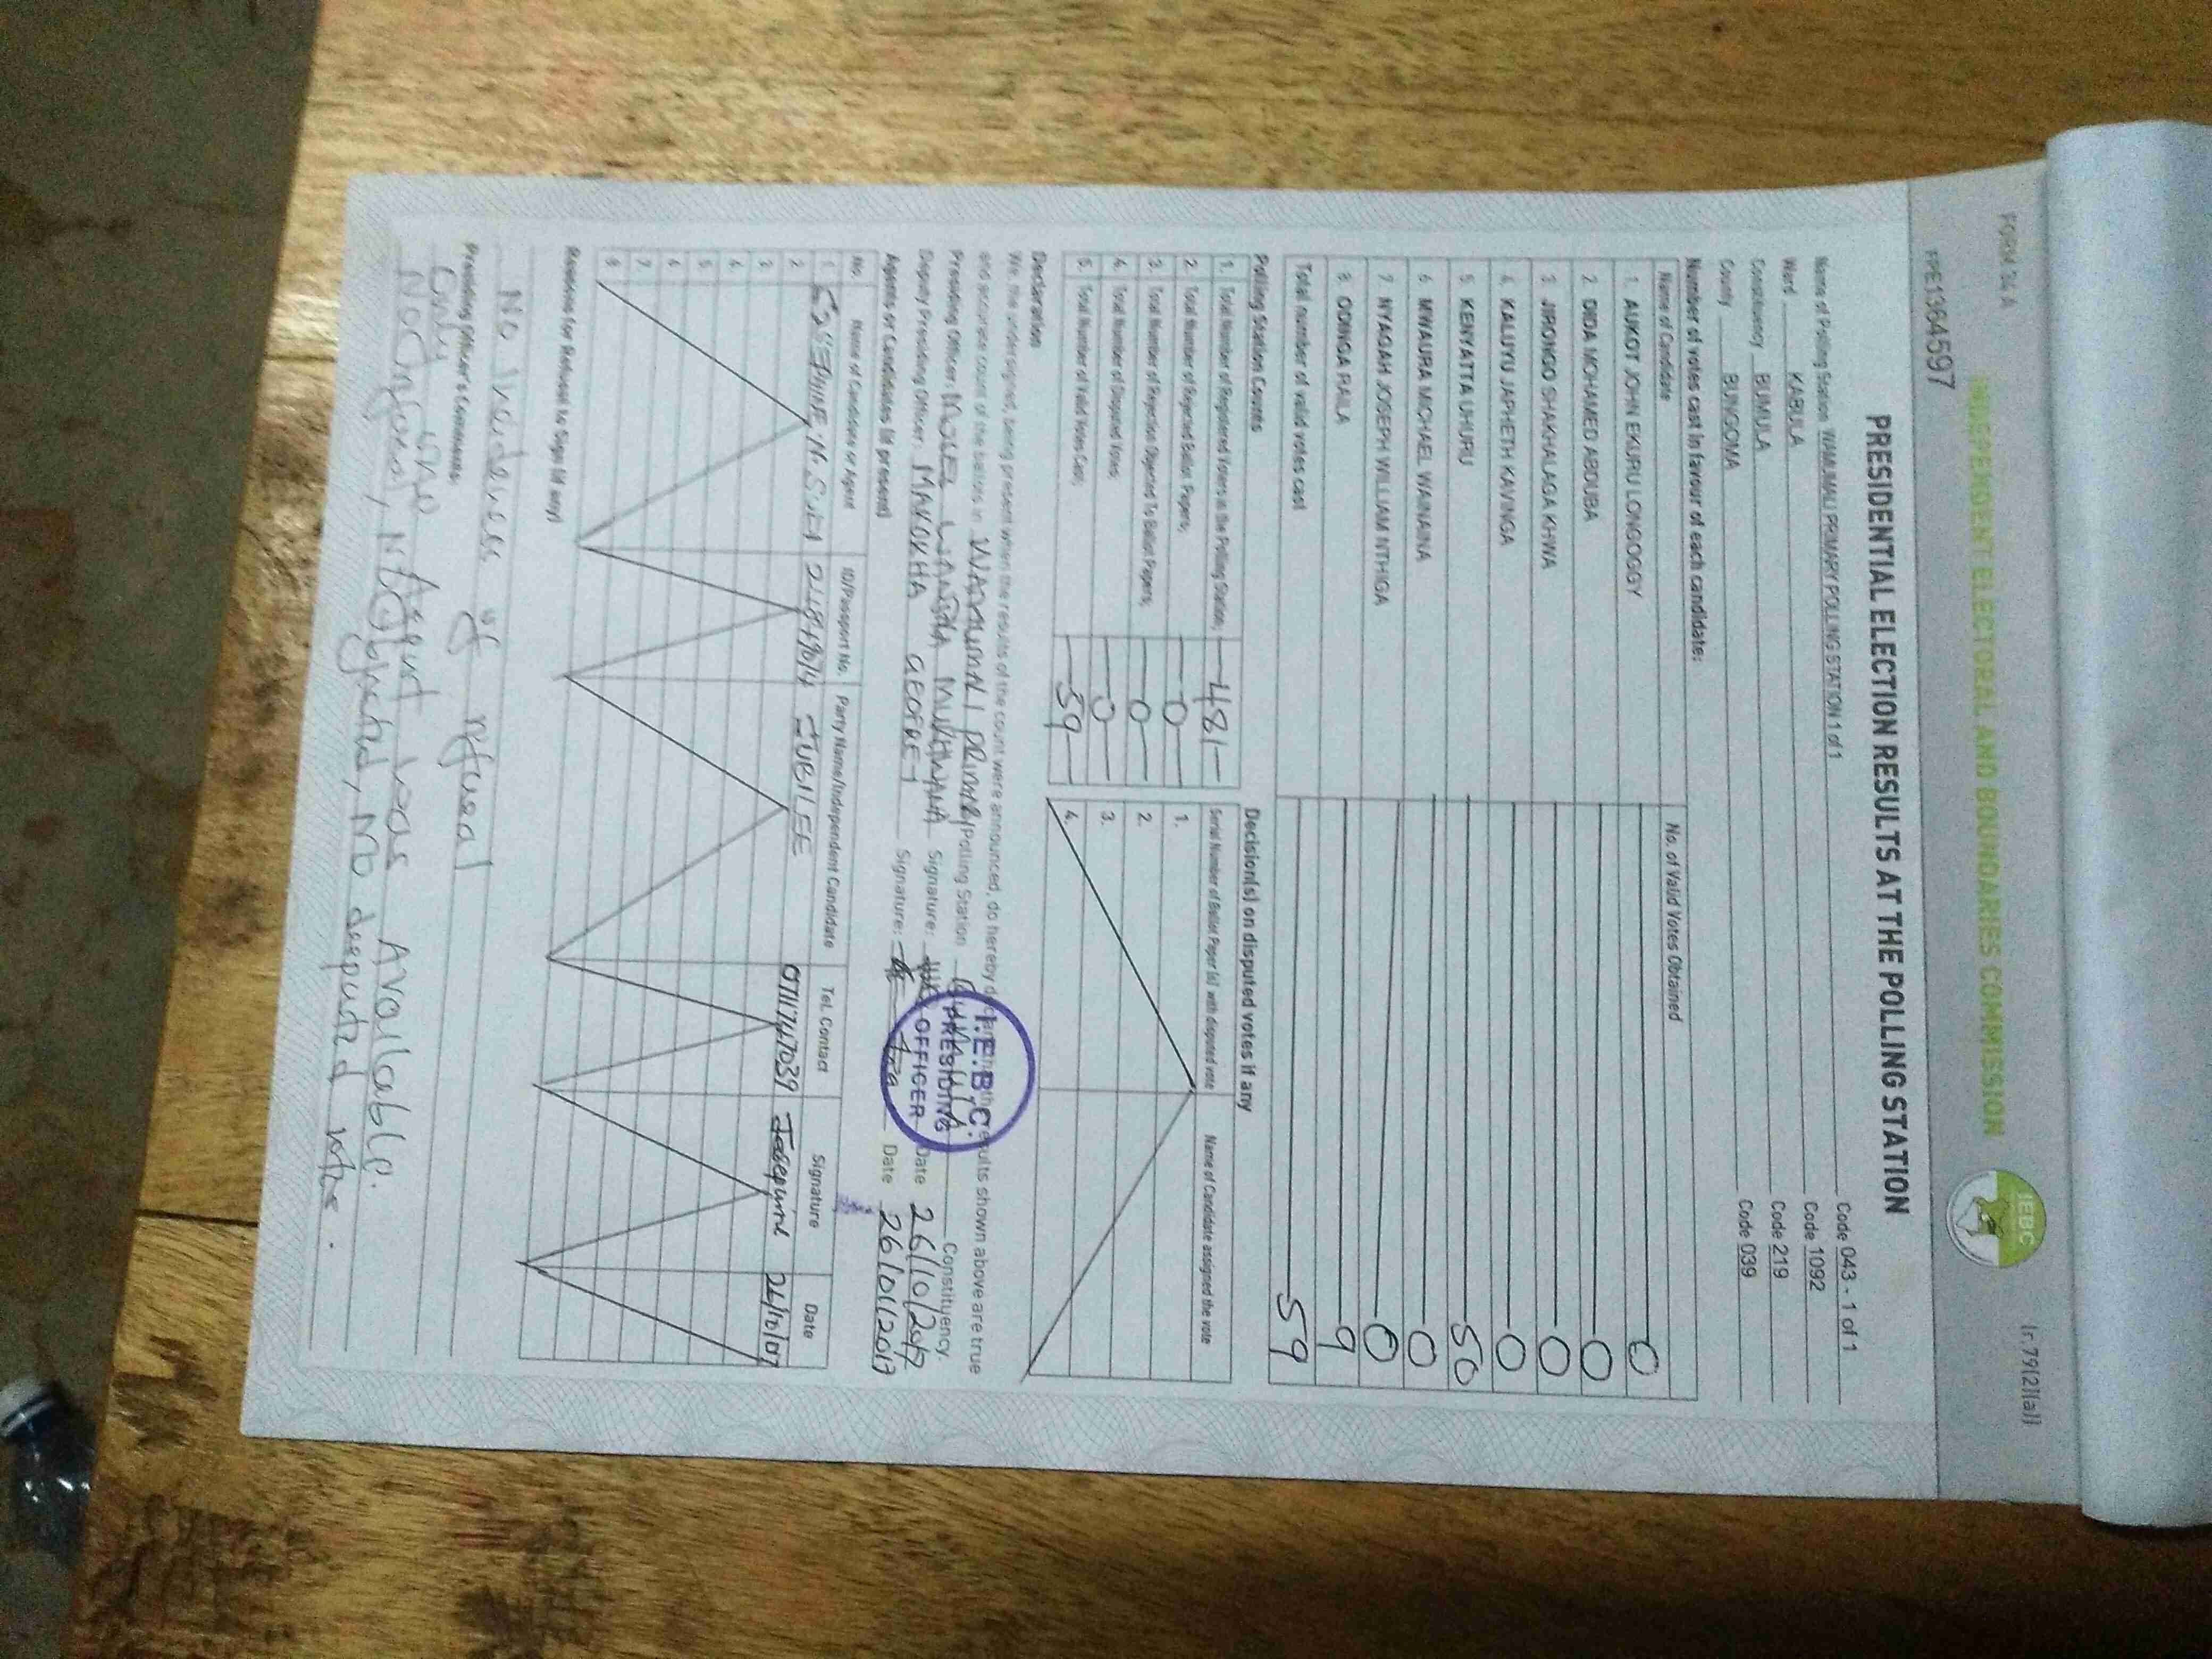 FORM 34 A
(r.79(2)(a))
INDEPENDENT ELECTORAL AND BOUNDARIES COMMISSION
IEBC
FPE1364597
PRESIDENTIAL ELECTION RESULTS AT THE POLLING STATION
Name of Polling Station WAMUMALI PRIMARY POLLING STATION 1 of 1 Code 043 - 1 of 1
Ward KABULA Code 1092
Constituency BUMULA Code 219
County BUNGOMA Code 039
Number of votes cast in favour of each candidate:
Name of Candidate No. of Valid Votes Obtained
1. AUKOT JOHN EKURU LONGOGGY 0
2. DIDA MOHAMED ABDUBA 0
3. JIRONGO SHAKHALAGA KHWA 0
4. KALUYU JAPHETH KAVINGA 0
5. KENYATTA UHURU 50
6. MWAURA MICHAEL WAINAINA 0
7. NYAGAH JOSEPH WILLIAM NTHIGA 0
8. ODINGA RAILA 9
Total number of valid votes cast 59
Polling Station Counts
1. Total Number of Registered Voters in the Polling Station; 481
2. Total Number of Rejected Ballot Papers; 0
3. Total Number of Rejection Objected To Ballot Papers; 0
4. Total Number of Disputed Votes; 0
5. Total Number of Valid Votes Cast; 59
Decision(s) on disputed votes if any
Serial Number of Ballot Paper (s) with disputed vote Name of Candidate assigned the vote
1.
2.
3.
4.
Declaration
We, the undersigned, being present when the results of the count were announced, do hereby declare that the results shown above are true
and accurate count of the ballots in WAMUMALI PRIMARY Polling Station Constituency.
Presiding Officer: Signature: Date 26/10/2017
Deputy Presiding Officer: MAKOKHA GEOFREY Signature: Date 26/10/2017
I.E.B.C.
PRESIDING
OFFICER
Agents or Candidates (if present)
No. Name of Candidate or Agent ID/Passport No. Party Name/Independent Candidate Tel. Contact Signature Date
1. JOSEPHINE N. 
JUBILEE 0711747039 Josephine
2.
3.
4.
5.
6.
7.
8.
Reasons for Refusal to Sign (if any)
No incidence of refusal
Presiding Officer's Comments:
Only one Agent was Available.
No
objected, No deputed votes.